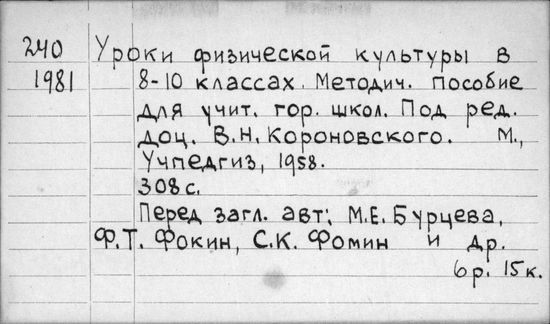 240 Уроки физической культуры в
1981 8-10 классах. Методич. пособие
для учит. гор. школ. Под ред.
доц. В.Н. Короновского. М.,
Учпедгиз, 1958.
308 с.
Перед загл. авт: М.Е. Бурцева,
Ф.Т. Фокин, С.К. Фомин и др.
6 р. 15 к.